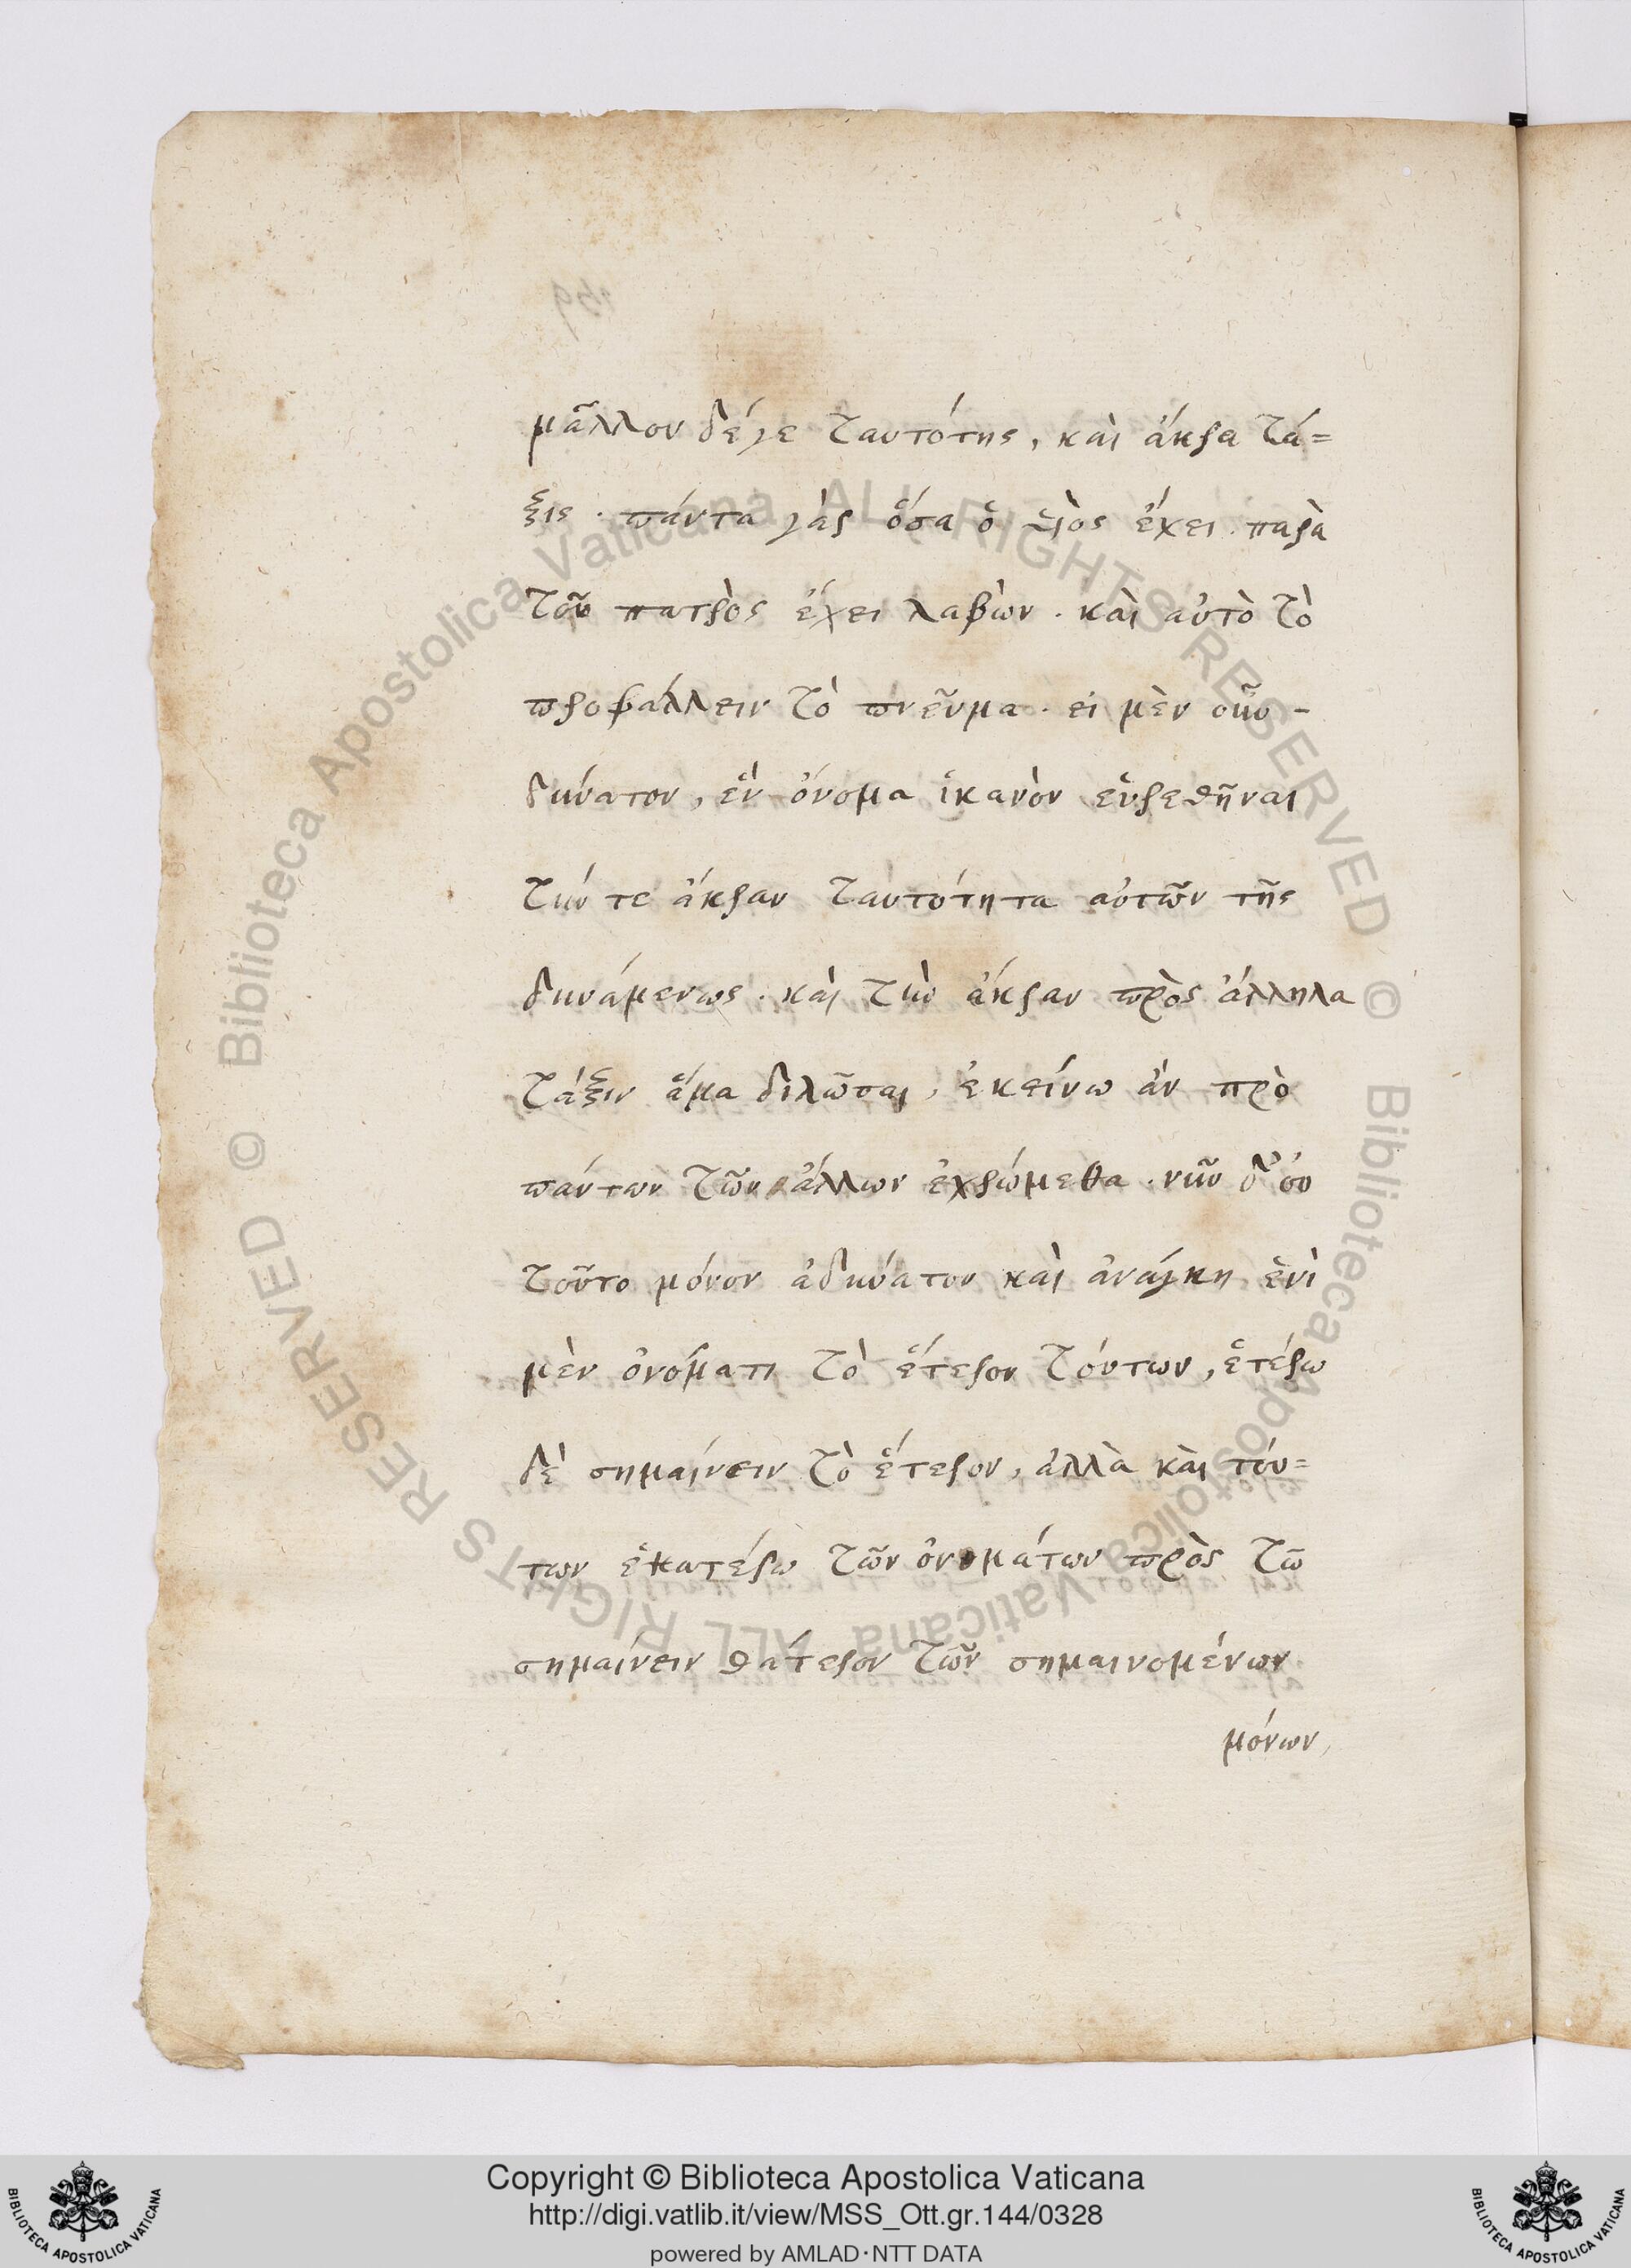 μᾶλλον δέγε ταυτότης, καὶ ἄκρα τά=
ξις. πάντα γὰρ ὅσα ὁ ὑιὸς ἔχει παρὰ
τοῦ πατρὸς ἔχει λαβὼν. καὶ αὐτὸ τὸ
προβάλλειν τὸ πνεῦμα. εἰ μὲν οὖν -
δυνατον, ἓν ὄνομα ἱκανὸν εὑρεθῆναι
τήν τε ἄκραν ταυτότητα αὐτῶν τῆς
δυνάμεως. καὶ τὴν ἄκραν πρὸς ἄλληλα
τάξιν ἅμα διλῶσαι, ἐκείνω ἂν πρὸ
πάντων τῶν ἄλλων ἐχρώμεθα. νῦν δ' οὐ
τοῦτο μόνον ἀδύνατον καὶ ἀνάγκη ἑνὶ
μὲν ὀνόματι τὸ ἕτερον τόυτων, ἑτέρω
δὲ σημαίνειν τὸ ἕτερον, ἀλλὰ καὶ τόυ=
των ἑκατέρω τῶν ὀνομάτων πρὸς τῶ
σημαίνειν θάτερον τῶν σημαινομένων
μόνων,
Copyright © Biblioteca Apostolica Vaticana
http://digi.vatlib.it/view/MSS_Ott.gr.144/0328
powered by AMLAD·NTT DATA
BIBLIOTECA APOSTOLICA VATICANA
BIBLIOTECA APOSTOLICA VATICANA
© Biblioteca Apostolica Vaticana ALL RIGHTS RESERVED
© Biblioteca Apostolica Vaticana ALL RIGHTS RESERVED